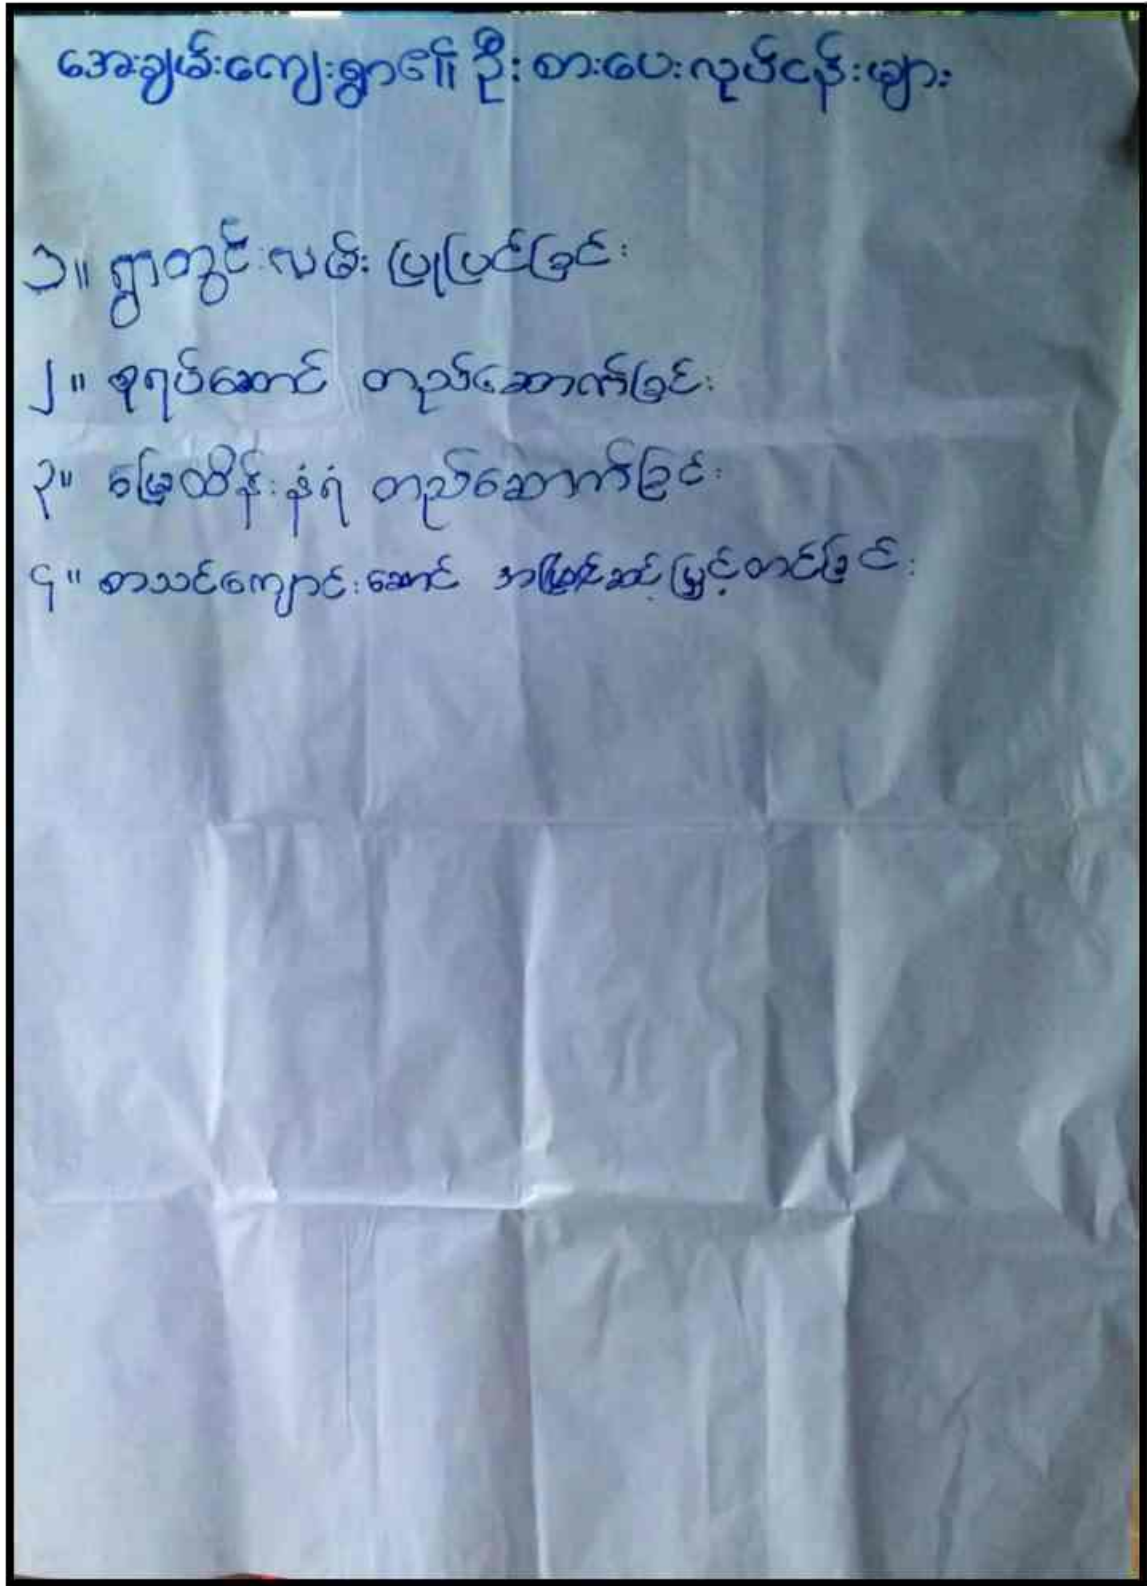 အေးချမ်းကျေးရွာ၏ ဦးစားပေးလုပ်ငန်းများ
၁။ ရွာတွင်းလမ်း ပြုပြင်ခြင်း
၂။ စုရပ်ဆောင် တည်ဆောက်ခြင်း
၃။ မြေထိန်းနံရံ တည်ဆောက်ခြင်း
၄။ စာသင်ကျောင်းဆောင် အဆင့်မြှင့်တင်ခြင်း